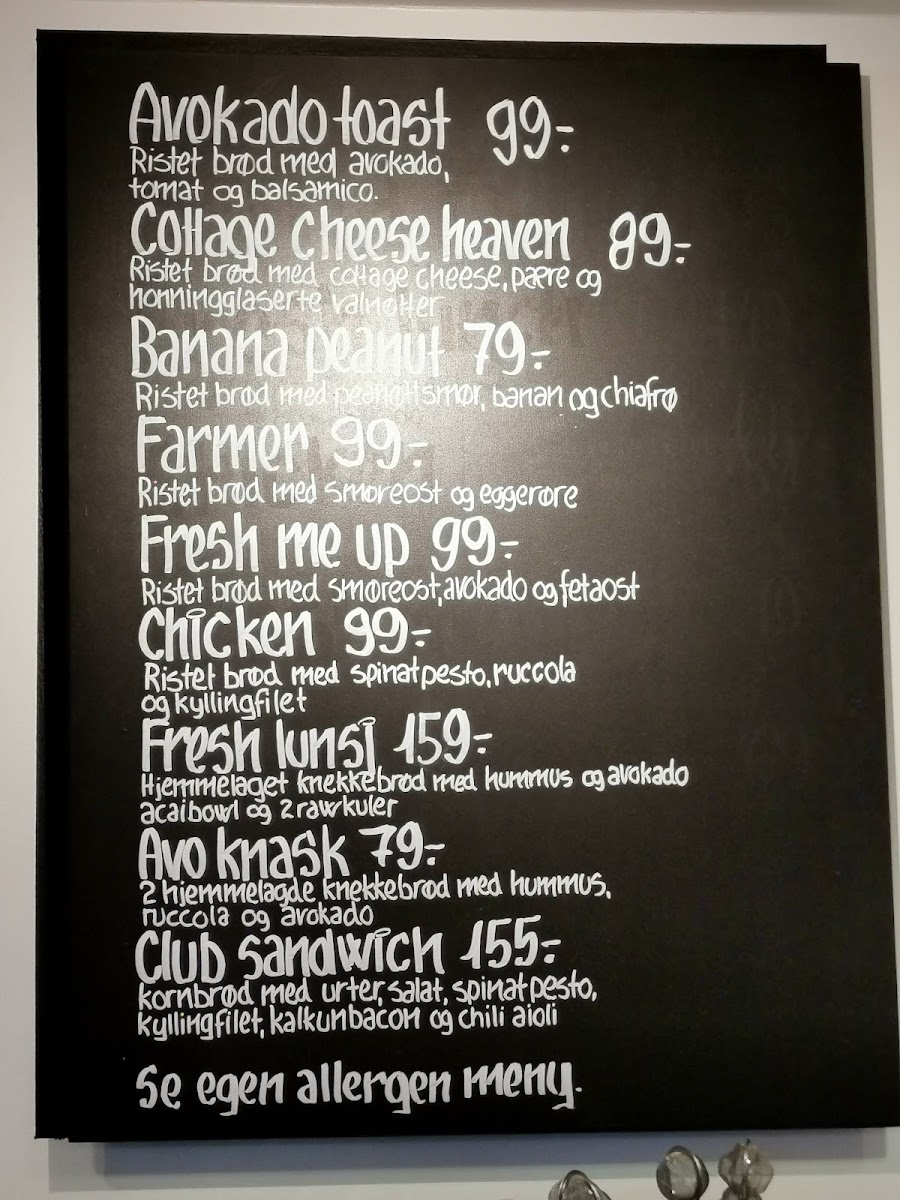 Avokado toast 99:-
Ristet brød med avokado,
tomat og balsamico.
Cottage cheese heaven 89:-
Ristet brød med cottage cheese, pære og
honningglaserte valnøtter
Banana peanut 79:-
Ristet brød med peanøttsmør, banan og chiafrø
Farmer 99:-
Ristet brød med smøreost og eggerøre
Fresh me up 99:-
Ristet brød med smøreost, avokado og fetaost
Chicken 99:-
Ristet brød med spinatpesto, ruccola
og kyllingfilet
Fresh lunsj 159:-
Hjemmelaget knekkebrød med hummus og avokado
acaibowl og 2 rawkuler
Avo knask 79:-
2 hjemmelagde knekkebrød med hummus,
ruccola og avokado
Club sandwich 155:-
kornbrød med urter, salat, spinatpesto,
kyllingfilet, kalkunbacon og chili aioli
Se egen allergen meny.